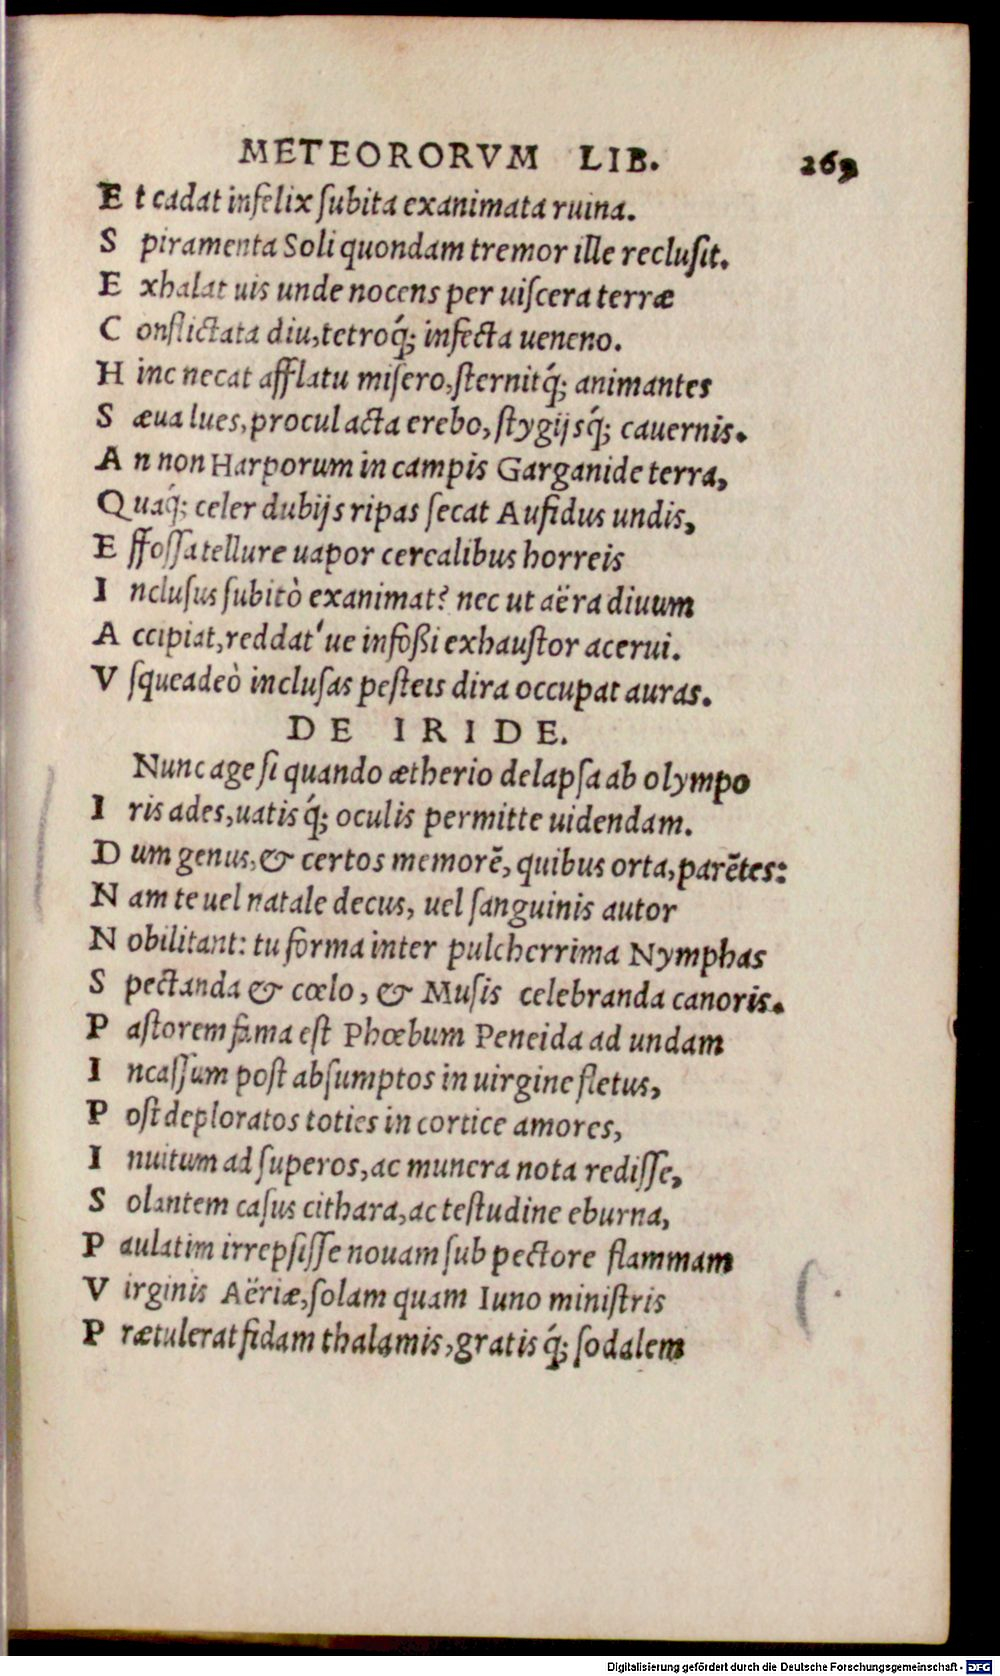 METEORORVM LIB. 269
E t cadat infelix ſubita exanimata ruina.
S piramenta Soli quondam tremor ille recluſit.
E xhalat uis unde nocens per uiſcera terræ
C onflictata diu, tetroq́; infecta ueneno.
H inc necat afflatu miſero, ſternitq́; animantes
S æua lues, procul acta erebo, ſtygijsq́; cauernis.
A n non Harporum in campis Garganide terra,
Q uaq́; celer dubijs ripas ſecat Aufidus undis,
E ffoſſa tellure uapor cercalibus horreis
I ncluſus ſubitò exanimat? nec ut aëra diuum
A ccipiat, reddat'ue infoßi exhauſtor acerui.
V ſqueadeò incluſas peſteis dira occupat auras.
DE IRIDE.
Nunc age ſi quando ætherio delapſa ab olympo
I ris ades, uatisq́; oculis permitte uidendam.
D um genus, & certos memorē, quibus orta, parētes:
N am te uel natale decus, uel ſanguinis autor
N obilitant: tu forma inter pulcherrima Nymphas
S pectanda & cœlo, & Muſis celebranda canoris.
P aſtorem fama eſt Phœbum Peneida ad undam
I ncaſſum poſt abſumptos in uirgine fletus,
P oſt deploratos toties in cortice amores,
I nuitum ad ſuperos, ac munera nota rediſſe,
S olantem caſus cithara, ac teſtudine eburna,
P aulatim irrepſiſſe nouam ſub pectore flammam
V irginis Aëriæ, ſolam quam Iuno miniſtris
P rætulerat fidam thalamis, gratisq́; ſodalem
Digitalisierung gefördert durch die Deutsche Forschungsgemeinschaft - DFG